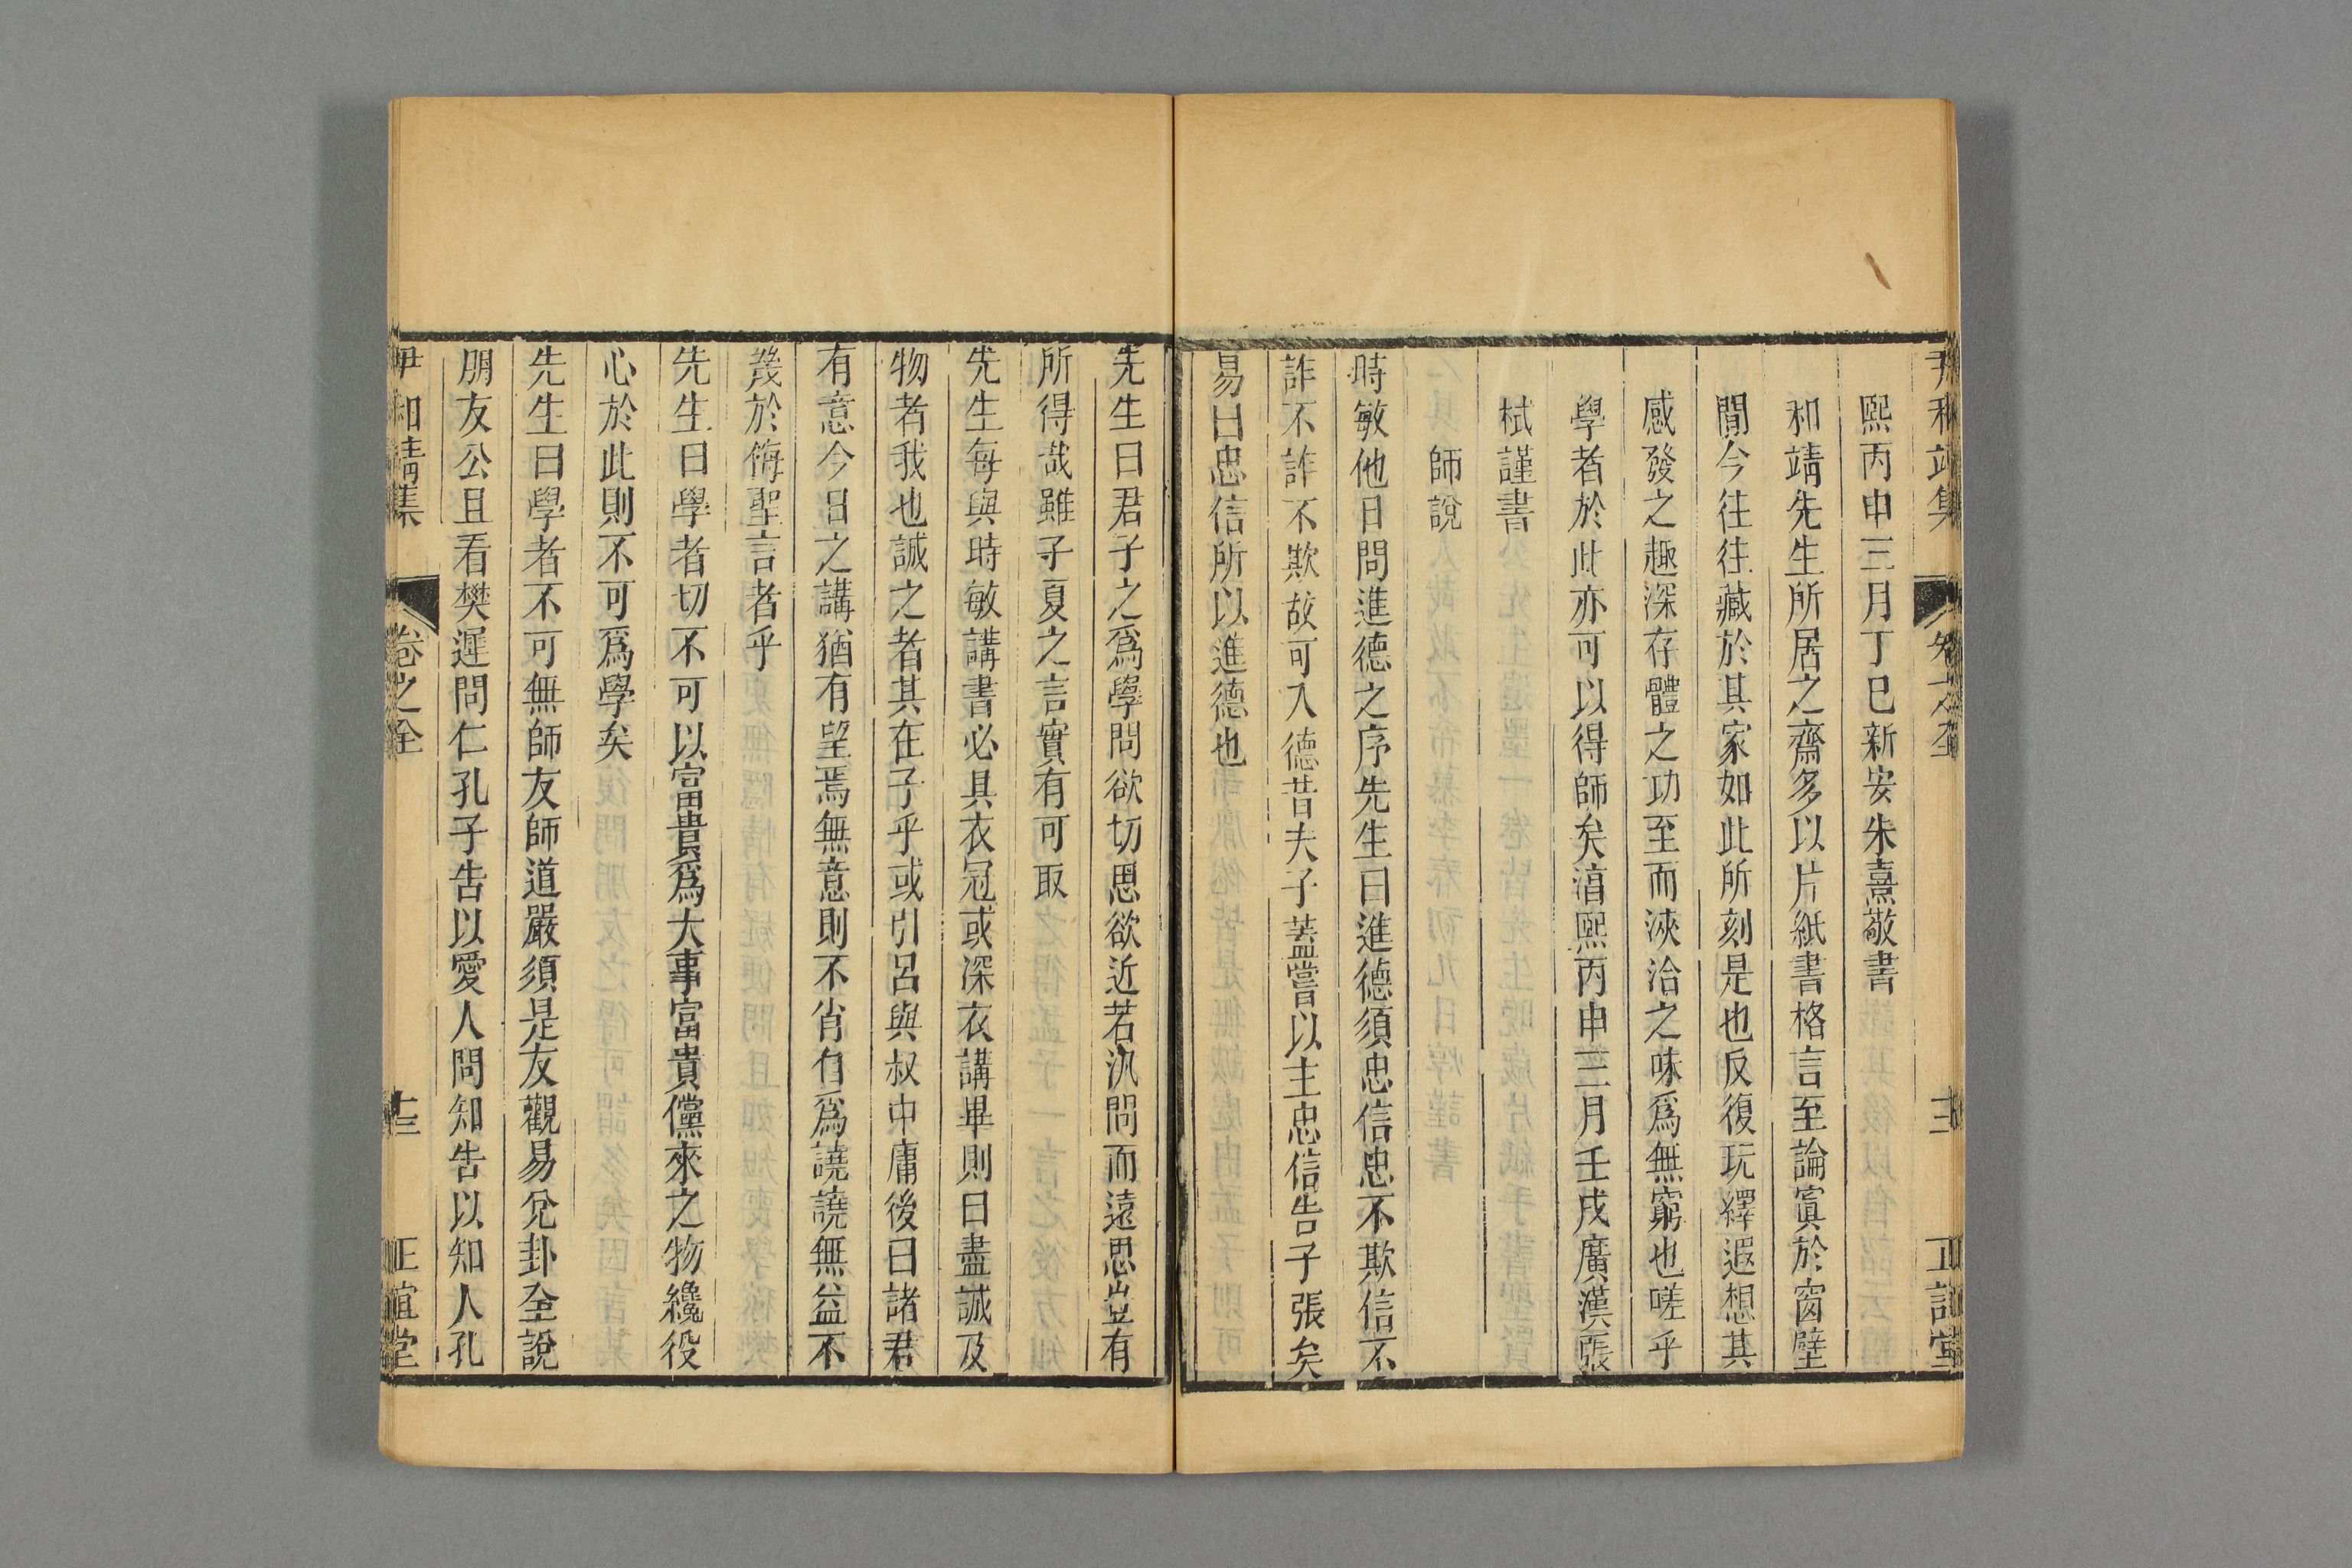 尹和靖集 卷之全 十二 正誼堂
熙丙申三月丁巳新安朱熹敬書
和靖先生所居之齋多以片紙書格言至論寘於窗壁
間今往往藏於其家如此所刻是也反復玩繹遐想其
感發之趣深存體之功至而浹洽之味爲無窮也嗟乎
學者於此亦可以得師矣淳熙丙申三月壬戌廣漢張
栻謹書
師說
時敏他日問進德之序先生曰進德須忠信忠不欺信不
詐不詐不欺故可入德昔夫子蓋嘗以主忠信告子張矣
易曰忠信所以進德也
先生曰君子之爲學問欲切思欲近若汎問而遠思豈有
所得哉雖子夏之言實有可取
先生每與時敏講書必具衣冠或深衣講畢則曰盡誠及
物者我也誠之者其在子乎或引呂與叔中庸後曰諸君
有意今日之講猶有望焉無意則不肖自爲譊譊無益不
幾於侮聖言者乎
先生曰學者切不可以富貴爲大事富貴儻來之物纔役
心於此則不可爲學矣
先生曰學者不可無師友師道嚴須是友觀易兌卦全說
朋友公且看樊遲問仁孔子告以愛人問知告以知人孔
尹和靖集 卷之全 十三 正誼堂